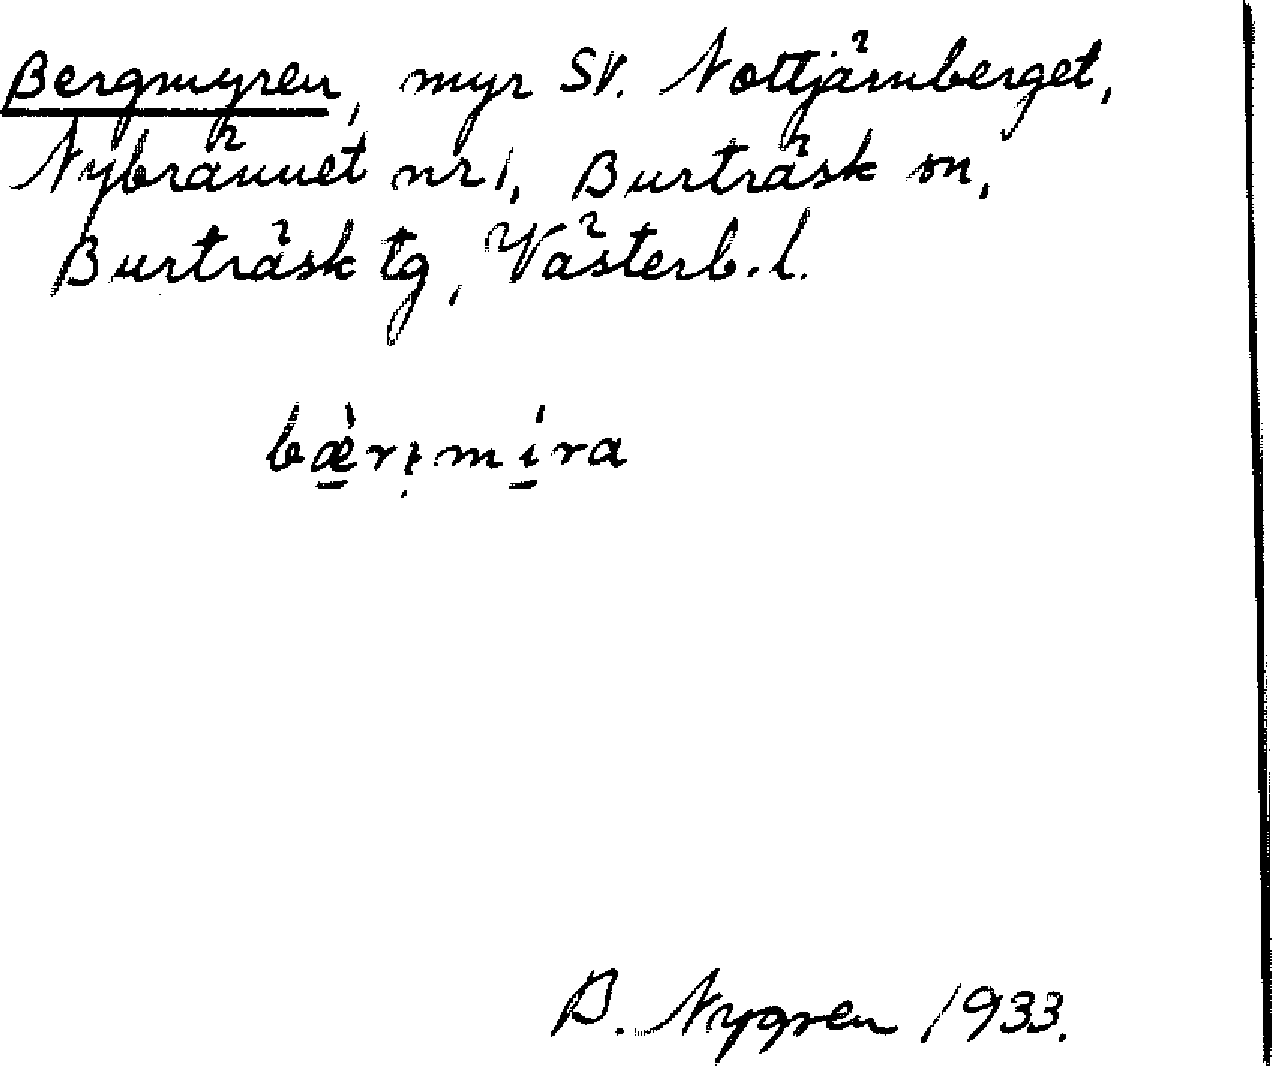 Bergmyren, myr SV. Nottjärnberget,
Nybrännet nr 1, Burträsk sn,
Burträsk tg, Västerb. l.
bæ̀rɩ̣míra
B. Nygren 1933.